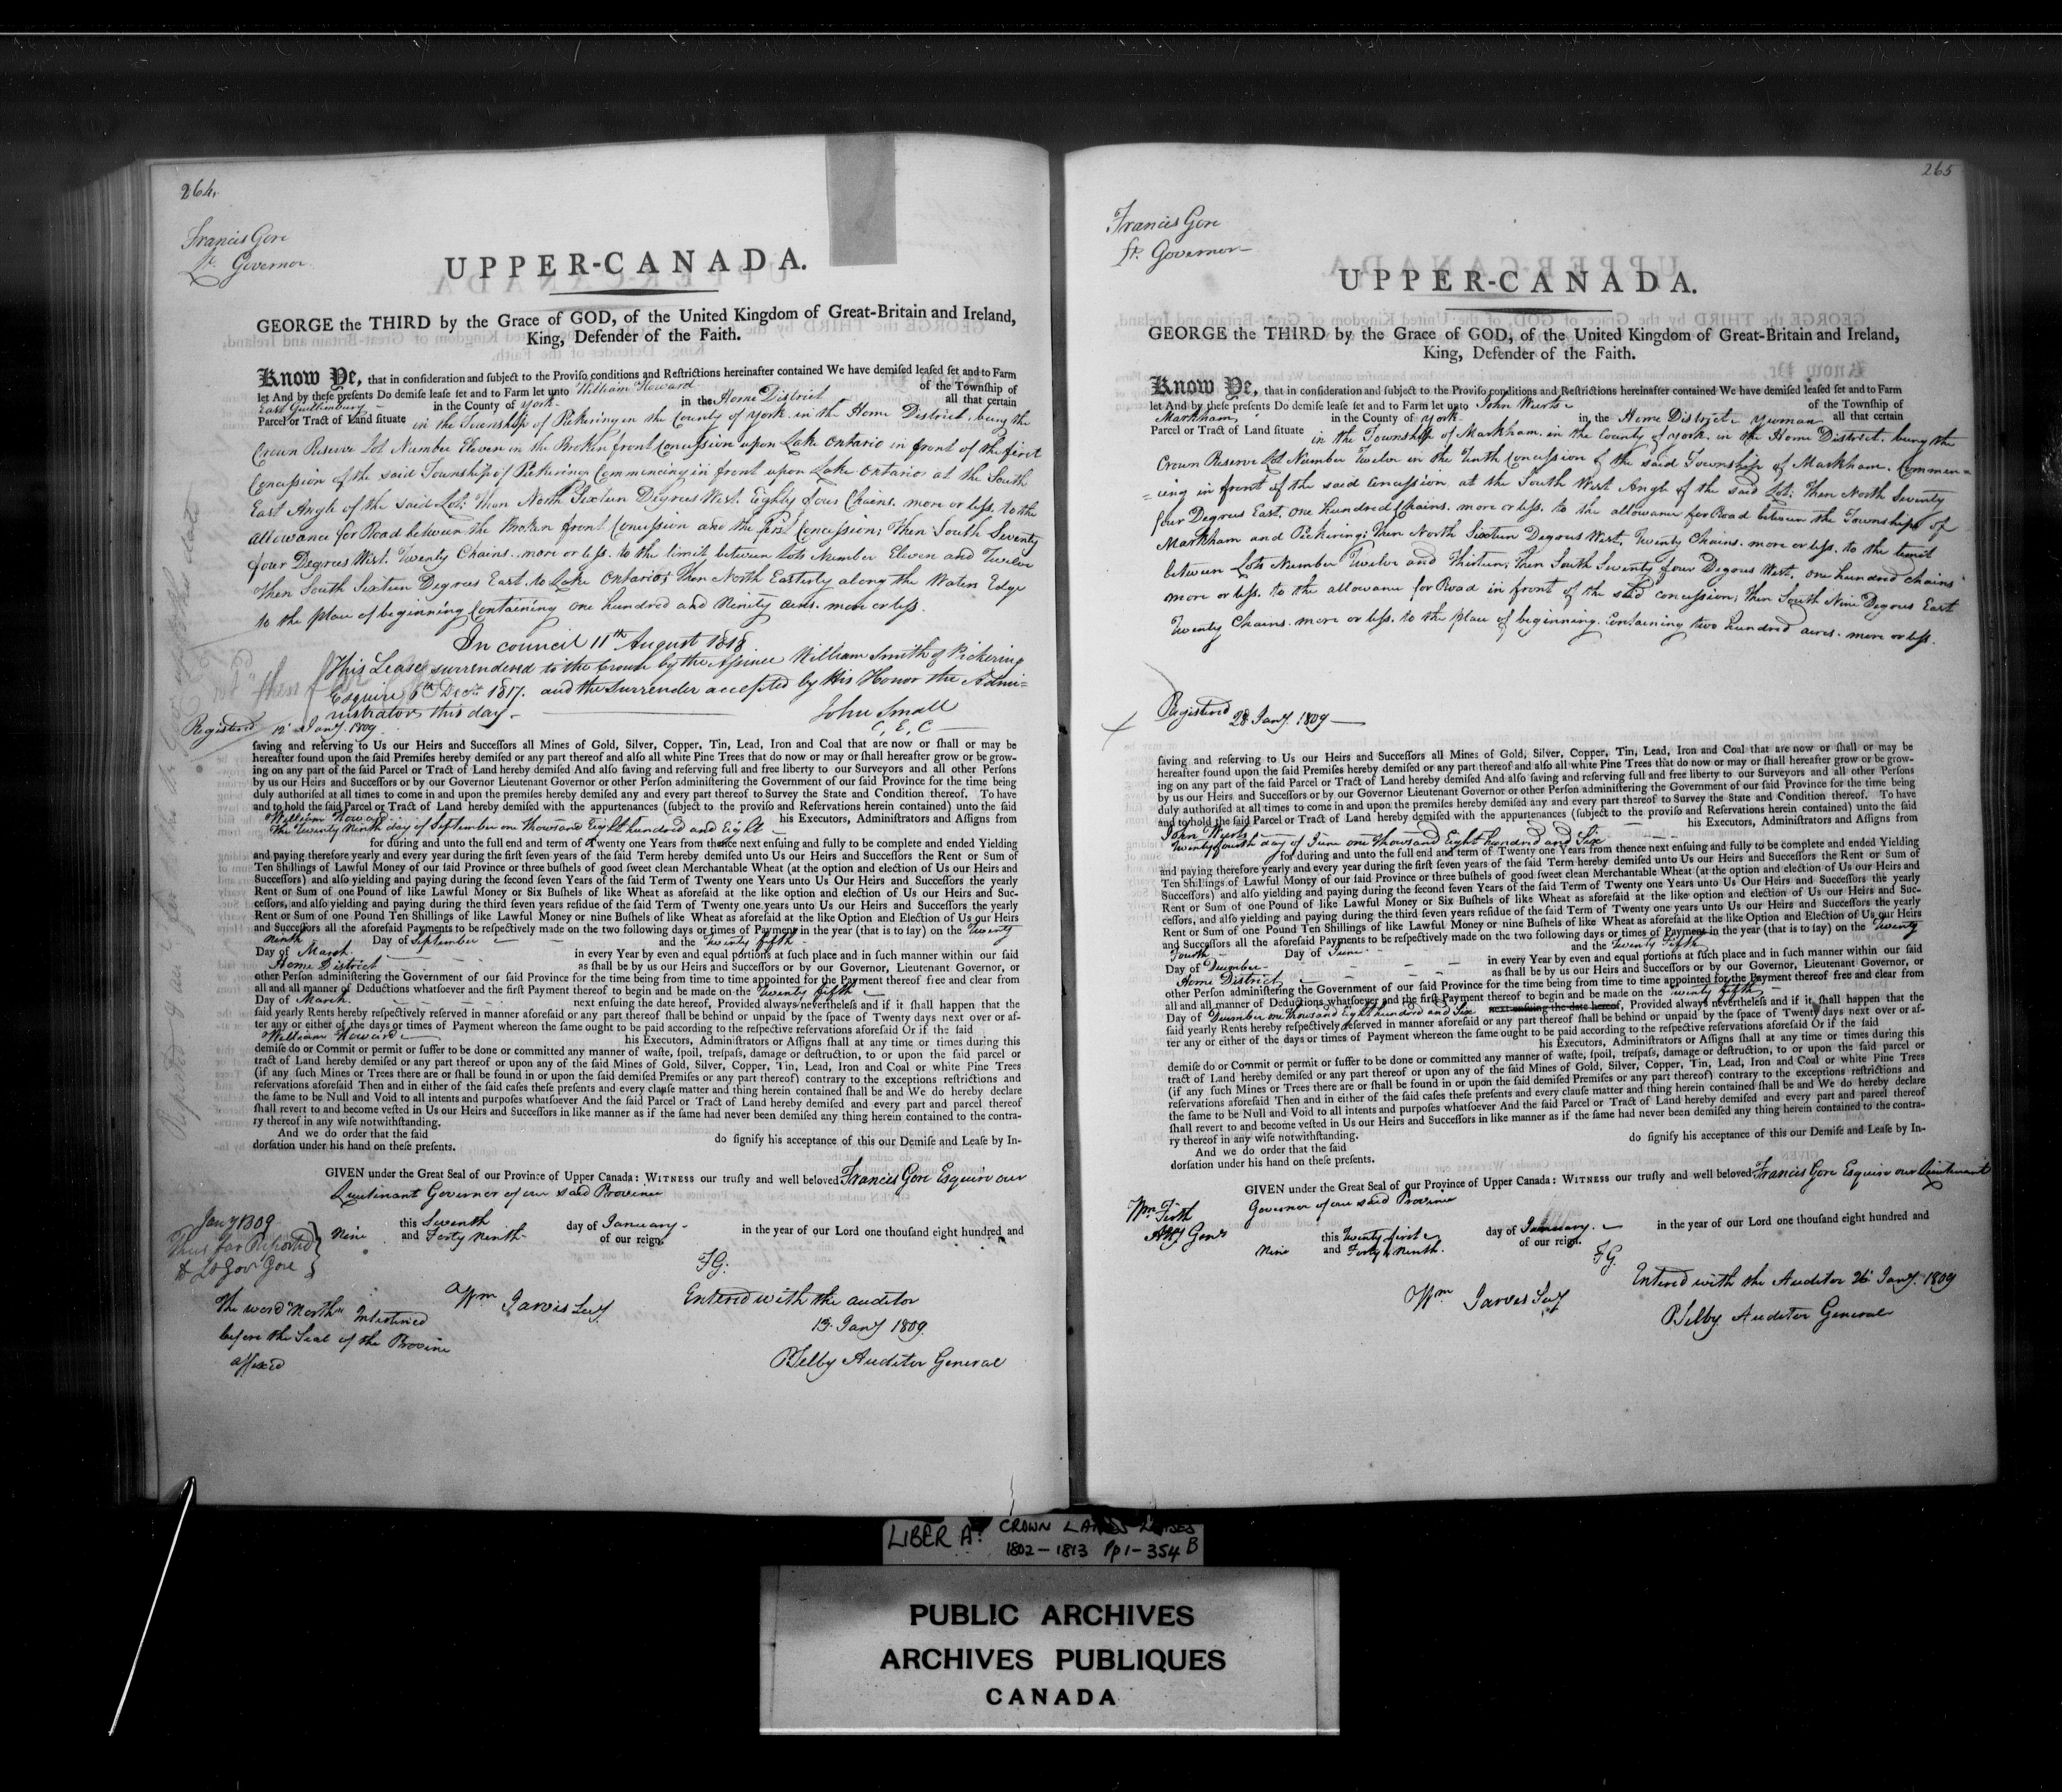 264.
Francis Gore
Lt. Governor
UPPER-CANADA.
GEORGE the THIRD by the Grace of GOD, of the United Kingdom of Great-Britain and Ireland,
King, Defender of the Faith.
Know Ye, that in confideration and fubject to the Provifo conditions and Reftrictions hereinafter contained We have demifed leafed fet and to Farm
let And by thefe prefents Do demife leafe fet and to Farm let unto William Howard of the Township of
East Guillimbury in the County of York in the Home District all that certain
Parcel or Tract of Land fituate in the Township of Pickering in the County of York in the Home District, being the
Crown Reserve Lot Number Eleven in the Broken front Concession upon Lake Ontario in front of the first
Concession of the said Township of Pickering Commencing in front upon Lake Ontario at the South
East Angle of the said Lot; then North Sixteen Degrees West. Eighty four Chains. more or less. to the
allowance for Road between the Broken front Concession and the first Concession; Then South Seventy
four Degrees West. Twenty Chains. more or less. to the limit between Lots Number Eleven and Twelve
Then South Sixteen Degrees East. to Lake Ontario; then North Easterly along the Waters Edge
to the place of beginning Containing one hundred and Ninety acres. more or less.
In council 11th August 1818
This Lease surrendered to the Crown by the Assinee William Smith of Pickering
Esquire 6th Decr. 1817. and the Surrender accepted by His Honor the Admi=
nistrator this day
John Small
C, E, C
Registered 12 Jany. 1809
faving and referving to Us our Heirs and Succeffors all Mines of Gold, Silver, Copper, Tin, Lead, Iron and Coal that are now or fhall or may be
hereafter found upon the faid Premifes hereby demifed or any part thereof and alfo all white Pine Trees that do now or may or fhall hereafter grow or be grow-
ing on any part of the faid Parcel or Tract of Land hereby demifed And alfo faving and referving full and free liberty to our Surveyors and all other Perfons
by us our Heirs and Succeffors or by our Governor Lieutenant Governor or other Perfon adminiftering the Government of our faid Province for the time being
duly authorifed at all times to come in and upon the premifes hereby demifed any and every part thereof to Survey the State and Condition thereof. To have
and to hold the faid Parcel or Tract of Land hereby demifed with the appurtenances (fubject to the provifo and Refervations herein contained) unto the faid
William Howard his Executors, Adminiftrators and Affigns from
the Twenty Ninth day of September one thousand Eight hundred and Eight
for during and unto the full end and term of Twenty one Years from thence next enfuing and fully to be complete and ended Yielding
and paying therefore yearly and every year during the firft feven years of the faid Term hereby demifed unto Us our Heirs and Succeffors the Rent or Sum of
Ten Shillings of Lawful Money of our faid Province or three bufhels of good fweet clean Merchantable Wheat (at the option and election of Us our Heirs and
Succeffors) and alfo yielding and paying during the fecond feven Years of the faid Term of Twenty one Years unto Us Our Heirs and Succeffors the yearly
Rent or Sum of one Pound of like Lawful Money or Six Bufhels of like Wheat as aforefaid at the like option and election of Us our Heirs and Suc-
ceffors, and alfo yielding and paying during the third feven years refidue of the faid Term of Twenty one years unto Us our Heirs and Succeffors the yearly
Rent or Sum of one Pound Ten Shillings of like Lawful Money or nine Bufhels of like Wheat as aforefaid at the like Option and Election of Us our Heirs
and Succeffors all the aforefaid Payments to be refpectively made on the two following days or times of Payment in the year (that is to fay) on the Twenty
ninth Day of September and the Twenty fifth
Day of March in every Year by even and equal portions at fuch place and in fuch manner within our faid
Home District as fhall be by us our Heirs and Succeffors or by our Governor, Lieutenant Governor, or
other Perfon adminiftering the Government of our faid Province for the time being from time to time appointed for the Payment thereof free and clear from
all and all manner of Deductions whatfoever and the firft Payment thereof to begin and be made on the Twenty fifth
Day of March. next enfuing the date hereof, Provided always neverthelefs and if it fhall happen that the
faid yearly Rents hereby refpectively referved in manner aforefaid or any part thereof fhall be behind or unpaid by the fpace of Twenty days next over or af-
ter any or either of the days or times of Payment whereon the fame ought to be paid according to the refpective refervations aforefaid Or if the faid
William Howard his Executors, Adminiftrators or Affigns fhall at any time or times during this
demife do or Commit or permit or fuffer to be done or committed any manner of wafte, fpoil, trefpafs, damage or deftruction, to or upon the faid parcel or
tract of Land hereby demifed or any part thereof or upon any of the faid Mines of Gold, Silver, Copper, Tin, Lead, Iron and Coal or white Pine Trees
(if any fuch Mines or Trees there are or fhall be found in or upon the faid demifed Premifes or any part thereof) contrary to the exceptions reftrictions and
refervations aforefaid Then and in either of the faid cafes thefe prefents and every claufe matter and thing herein contained fhall be and We do hereby declare
the fame to be Null and Void to all intents and purpofes whatfoever And the faid Parcel or Tract of Land hereby demifed and every part and parcel thereof
fhall revert to and become vefted in Us our Heirs and Succeffors in like manner as if the fame had never been demifed any thing herein contained to the contra-
ry thereof in any wife notwithftanding.
And we do order that the faid do fignify his acceptance of this our Demife and Leafe by In-
dorfation under his hand on thefe prefents.
GIVEN under the Great Seal of our Province of Upper Canada: WITNESS our trufty and well beloved Francis Gore Esquire our
Lieutenant Governor of our said Province
this Seventh day of January in the year of our Lord one thoufand eight hundred and
Nine and Forty Ninth of our reign.
Jany 1809
Thus far Reported
to Lt Govr Gore
F G:
Wm Jarvis Secy.
Entered with the auditor
13. Jany 1809.
PSelby Auditor General
The word "North" Interlined
before the Seal of the Province
affixed
265
Francis Gore
Lt. Governor
UPPER-CANADA.
GEORGE the THIRD by the Grace of GOD, of the United Kingdom of Great-Britain and Ireland,
King, Defender of the Faith.
Know Ye, that in confideration and fubject to the Provifo conditions and Reftrictions hereinafter contained We have demifed leafed fet and to Farm
let And by thefe prefents Do demife leafe fet and to Farm let unto John Wurts of the Township of
Markham, in the County of York in the Home District yeoman all that certain
Parcel or Tract of Land fituate in the Township of Markham. in the County of York. in the Home District. being the
Crown Reserve Lot Number Twelve in the Tenth Concession of the said Township of Markham. Commen=
=cing in front of the said Concession at the South West Angle of the said Lot; Then North Seventy
four Degrees East. one hundred Chains. more or less. to the allowance for Road between the Townships of
Markham and Pickering; Then North Sixteen Degrees West, Twenty Chains. more or less. to the limit
between Lots Number Twelve and Thirteen; Then South Seventy four Degrees West, one hundred chains
more or less. to the allowance for Road in front of the said concession; Then South Nine Degrees East
Twenty Chains. more or less. to the place of beginning. Containing two hundred acres. more or less.
Registered 28 Jany. 1809
faving and referving to Us our Heirs and Succeffors all Mines of Gold, Silver, Copper, Tin, Lead, Iron and Coal that are now or fhall or may be
hereafter found upon the faid Premifes hereby demifed or any part thereof and alfo all white Pine Trees that do now or may or fhall hereafter grow or be grow-
ing on any part of the faid Parcel or Tract of Land hereby demifed And alfo faving and referving full and free liberty to our Surveyors and all other Perfons
by us our Heirs and Succeffors or by our Governor Lieutenant Governor or other Perfon adminiftering the Government of our faid Province for the time being
duly authorifed at all times to come in and upon the premifes hereby demifed any and every part thereof to Survey the State and Condition thereof. To have
and to hold the faid Parcel or Tract of Land hereby demifed with the appurtenances (fubject to the provifo and Refervations herein contained) unto the faid
John Wurts his Executors, Adminiftrators and Affigns from
Twenty fourth day of June one thousand Eight hundred and Six
for during and unto the full end and term of Twenty one Years from thence next enfuing and fully to be complete and ended Yielding
and paying therefore yearly and every year during the firft feven years of the faid Term hereby demifed unto Us our Heirs and Succeffors the Rent or Sum of
Ten Shillings of Lawful Money of our faid Province or three bufhels of good fweet clean Merchantable Wheat (at the option and election of Us our Heirs and
Succeffors) and alfo yielding and paying during the fecond feven Years of the faid Term of Twenty one Years unto Us Our Heirs and Succeffors the yearly
Rent or Sum of one Pound of like Lawful Money or Six Bufhels of like Wheat as aforefaid at the like option and election of Us our Heirs and Suc-
ceffors, and alfo yielding and paying during the third feven years refidue of the faid Term of Twenty one years unto Us our Heirs and Succeffors the yearly
Rent or Sum of one Pound Ten Shillings of like Lawful Money or nine Bufhels of like Wheat as aforefaid at the like Option and Election of Us our Heirs
and Succeffors all the aforefaid Payments to be refpectively made on the two following days or times of Payment in the year (that is to fay) on the Twenty
fourth Day of June and the Twenty Fifth
Day of December in every Year by even and equal portions at fuch place and in fuch manner within our faid
Home District as fhall be by us our Heirs and Succeffors or by our Governor, Lieutenant Governor, or
other Perfon adminiftering the Government of our faid Province for the time being from time to time appointed for the Payment thereof free and clear from
all and all manner of Deductions whatfoever and the firft Payment thereof to begin and be made on the twenty fifth
Day of December one thousand Eight hundred and Six next enfuing the date hereof, Provided always neverthelefs and if it fhall happen that the
faid yearly Rents hereby refpectively referved in manner aforefaid or any part thereof fhall be behind or unpaid by the fpace of Twenty days next over or af-
ter any or either of the days or times of Payment whereon the fame ought to be paid according to the refpective refervations aforefaid Or if the faid
his Executors, Adminiftrators or Affigns fhall at any time or times during this
demife do or Commit or permit or fuffer to be done or committed any manner of wafte, fpoil, trefpafs, damage or deftruction, to or upon the faid parcel or
tract of Land hereby demifed or any part thereof or upon any of the faid Mines of Gold, Silver, Copper, Tin, Lead, Iron and Coal or white Pine Trees
(if any fuch Mines or Trees there are or fhall be found in or upon the faid demifed Premifes or any part thereof) contrary to the exceptions reftrictions and
refervations aforefaid Then and in either of the faid cafes thefe prefents and every claufe matter and thing herein contained fhall be and We do hereby declare
the fame to be Null and Void to all intents and purpofes whatfoever And the faid Parcel or Tract of Land hereby demifed and every part and parcel thereof
fhall revert to and become vefted in Us our Heirs and Succeffors in like manner as if the fame had never been demifed any thing herein contained to the contra-
ry thereof in any wife notwithftanding.
And we do order that the faid do fignify his acceptance of this our Demife and Leafe by In-
dorfation under his hand on thefe prefents.
GIVEN under the Great Seal of our Province of Upper Canada: WITNESS our trufty and well beloved Francis Gore Esquire our Lieutenant
Governor of our said Province
Wm. Firth
Atty Genl
this Twenty first day of January. in the year of our Lord one thoufand eight hundred and
Nine and Forty ninth. of our reign.
F G.
Wm Jarvis Secy
Entered with the Auditor 26 Jany. 1809
PSelby Auditor General
LIBER A: CROWN LANDS LEASES
1802-1813 Pp 1-354 B
PUBLIC ARCHIVES
ARCHIVES PUBLIQUES
CANADA